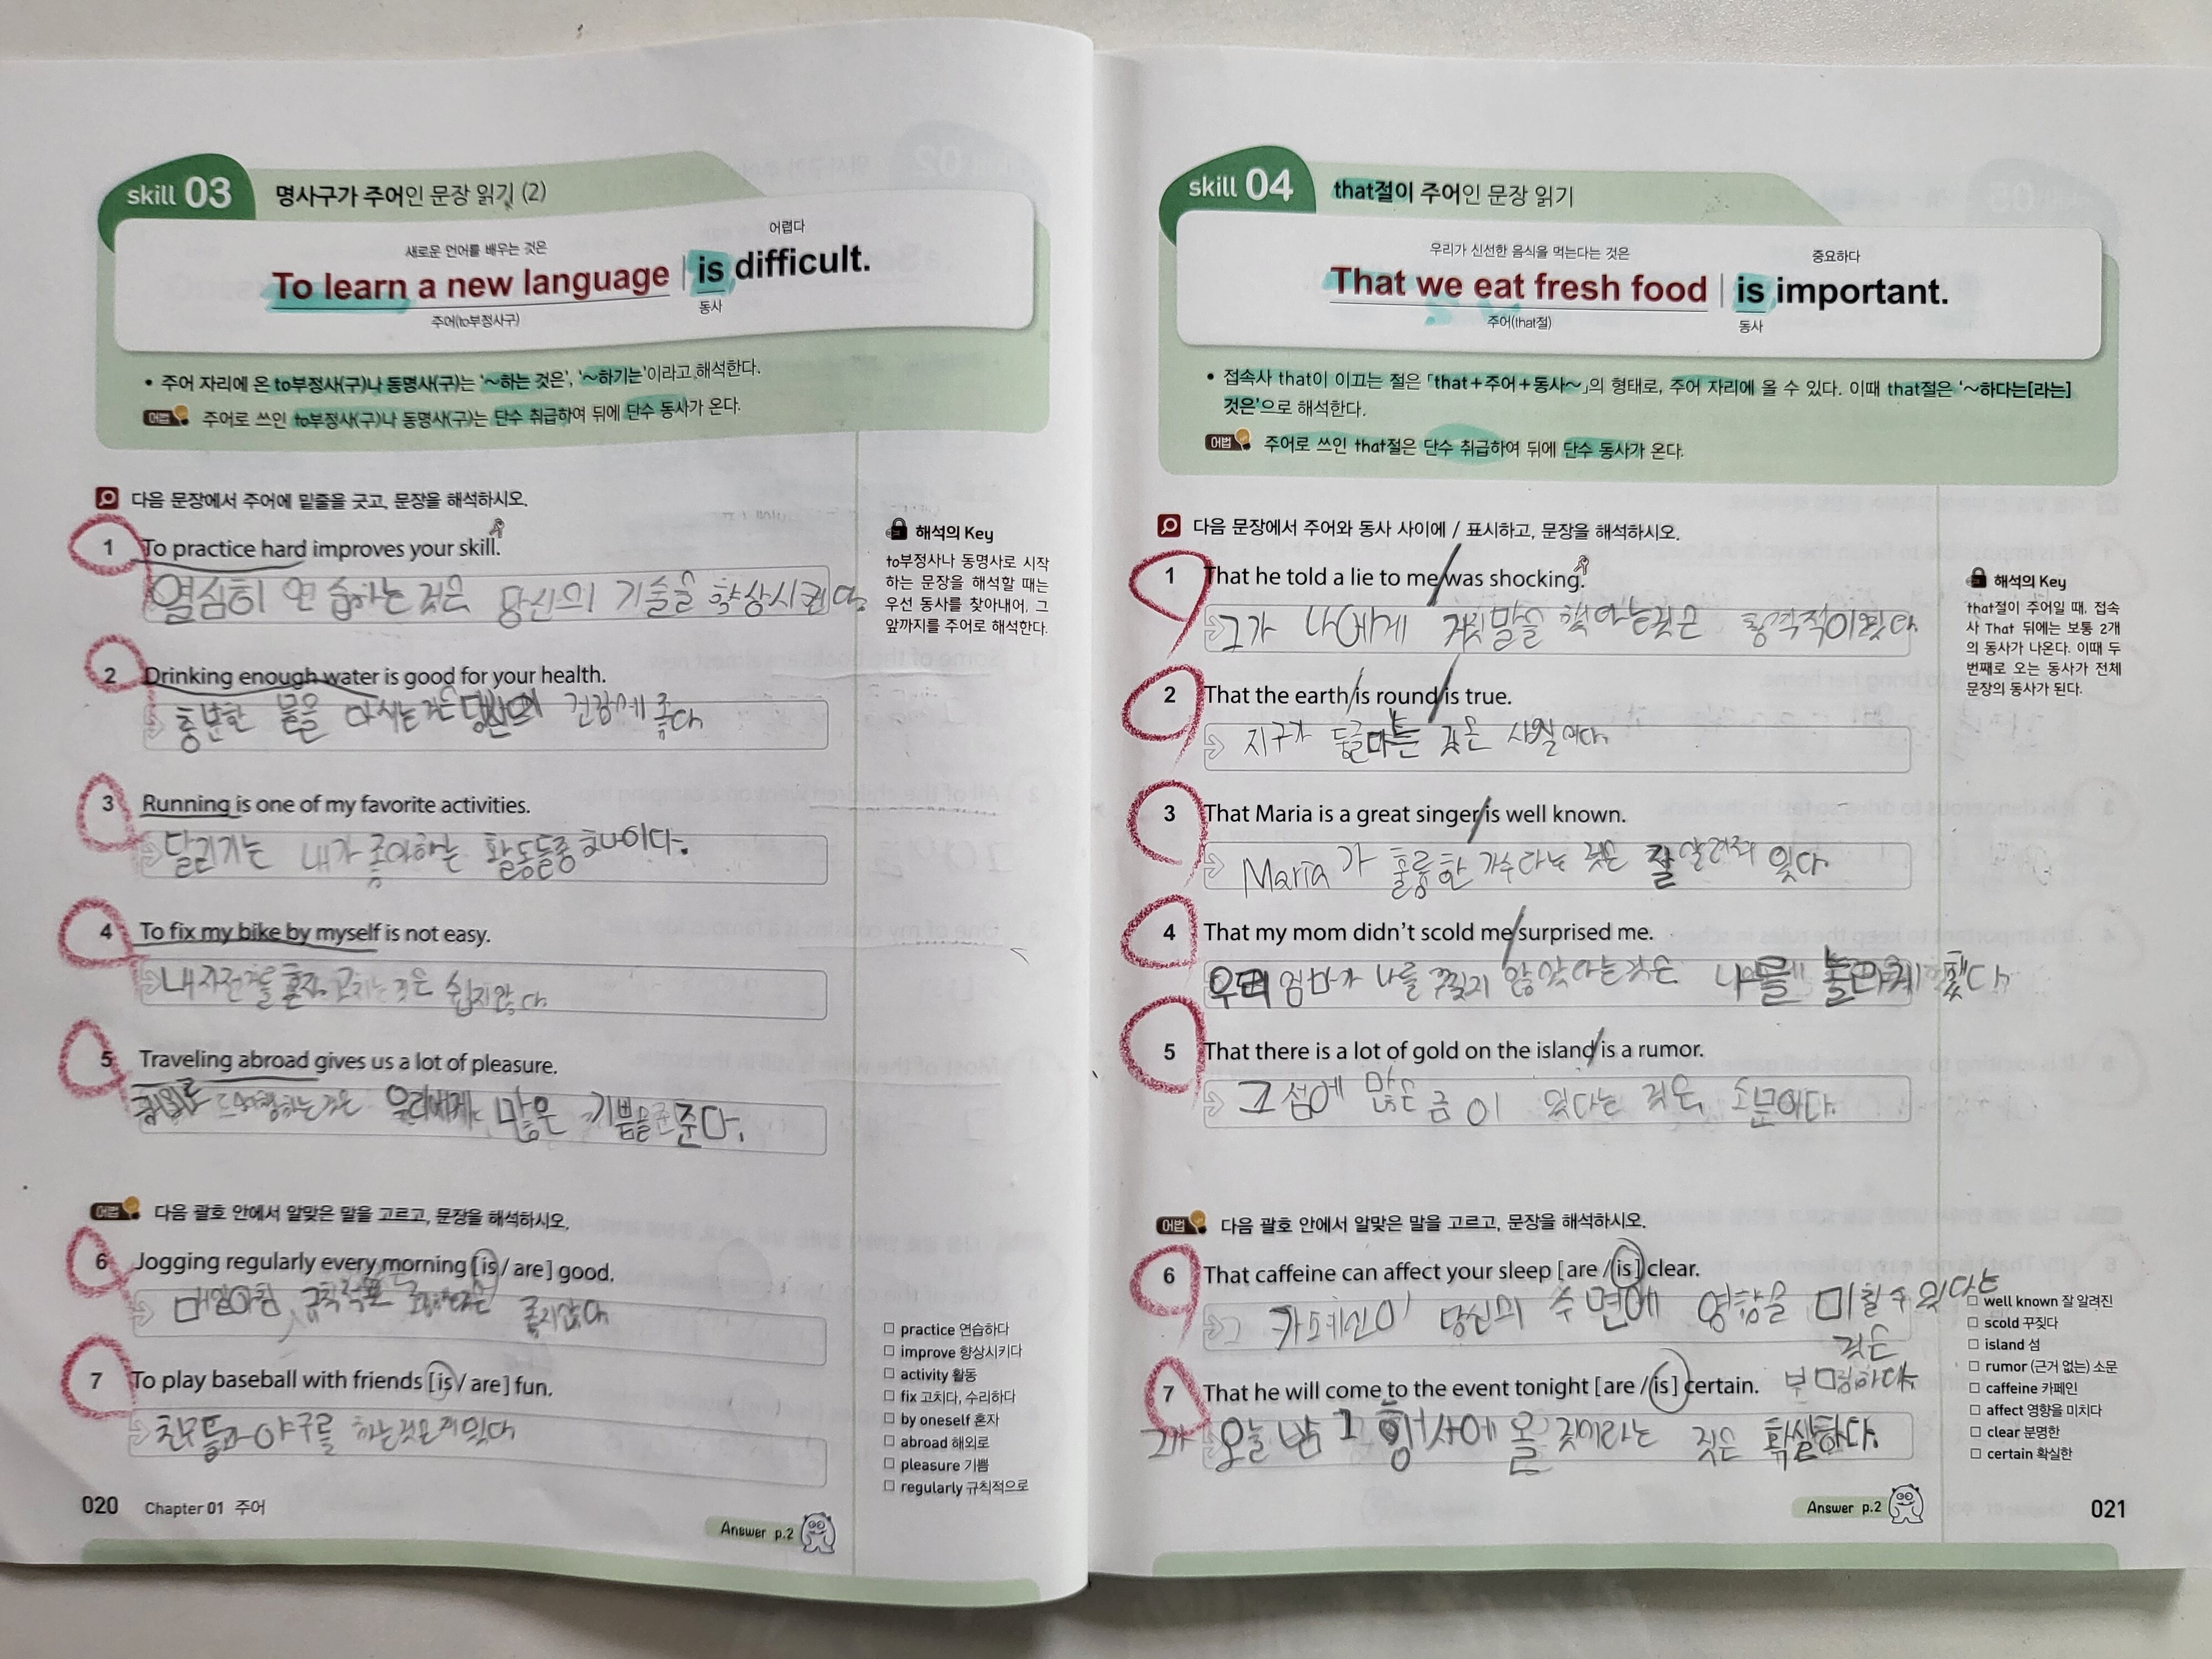 skill 03 명사구가 주어인 문장 읽기 (2)
새로운 언어를 배우는 것은 어렵다
To learn a new language | is difficult.
주어(to부정사구) 동사
• 주어 자리에 온 to부정사(구)나 동명사(구)는 '~하는 것은', '~하기는'이라고 해석한다.
어법 주어로 쓰인 to부정사(구)나 동명사(구)는 단수 취급하여 뒤에 단수 동사가 온다.
다음 문장에서 주어에 밑줄을 긋고, 문장을 해석하시오.
1 To practice hard improves your skill.
열심히 연습하는 것은 당신의 기술을 향상시킨다
2 Drinking enough water is good for your health.
충분한 물을 마시는 것은 당신의 건강에 좋다
3 Running is one of my favorite activities.
달리기는 내가 좋아하는 활동들중 하나이다.
4 To fix my bike by myself is not easy.
내 자전거를 혼자 고치는 것은 쉽지않다
5 Traveling abroad gives us a lot of pleasure.
해외로 여행하는 것은 우리에게 많은 기쁨을 준다.
해석의 Key
to부정사나 동명사로 시작
하는 문장을 해석할 때는
우선 동사를 찾아내어, 그
앞까지를 주어로 해석한다.
어법 다음 괄호 안에서 알맞은 말을 고르고, 문장을 해석하시오.
6 Jogging regularly every morning [is / are] good.
매일아침 규칙적으로 좋지않다
7 To play baseball with friends [is / are] fun.
친구들과 야구를 하는것은 재밌다
□ practice 연습하다
□ improve 향상시키다
□ activity 활동
□ fix 고치다, 수리하다
□ by oneself 혼자
□ abroad 해외로
□ pleasure 기쁨
□ regularly 규칙적으로
020 Chapter 01 주어
Answer p.2
skill 04 that절이 주어인 문장 읽기
우리가 신선한 음식을 먹는다는 것은 중요하다
That we eat fresh food | is important.
주어(that절) 동사
• 접속사 that이 이끄는 절은 「that+주어+동사~」의 형태로, 주어 자리에 올 수 있다. 이때 that절은 '~하다는[라는]
것은'으로 해석한다.
어법 주어로 쓰인 that절은 단수 취급하여 뒤에 단수 동사가 온다.
다음 문장에서 주어와 동사 사이에 / 표시하고, 문장을 해석하시오.
1 That he told a lie to me/was shocking.
그가 나에게 거짓말을 했다는것은 충격적이었다
2 That the earth/is round/is true.
지구가 둥글다는 것은 사실이다.
3 That Maria is a great singer/is well known.
Maria가 훌륭한 가수다는 것은 잘 알려져 있다
4 That my mom didn't scold me/surprised me.
우리 엄마가 나를 꾸짖지 않았다는것은 나를 놀라게 했다
5 That there is a lot of gold on the island/is a rumor.
그 섬에 많은 금이 있다는 것은 소문이다.
해석의 Key
that절이 주어일 때, 접속
사 That 뒤에는 보통 2개
의 동사가 나온다. 이때 두
번째로 오는 동사가 전체
문장의 동사가 된다.
어법 다음 괄호 안에서 알맞은 말을 고르고, 문장을 해석하시오.
6 That caffeine can affect your sleep [are / is] clear.
카페인이 당신의 수면에 영향을 미칠 수 있다는
것은
7 That he will come to the event tonight [are / is] certain.
그가 오늘 밤 그 행사에 올 것이라는 것은 확실하다.
□ well known 잘 알려진
□ scold 꾸짖다
□ island 섬
□ rumor (근거 없는) 소문
□ caffeine 카페인
□ affect 영향을 미치다
□ clear 분명한
□ certain 확실한
Answer p.2
021